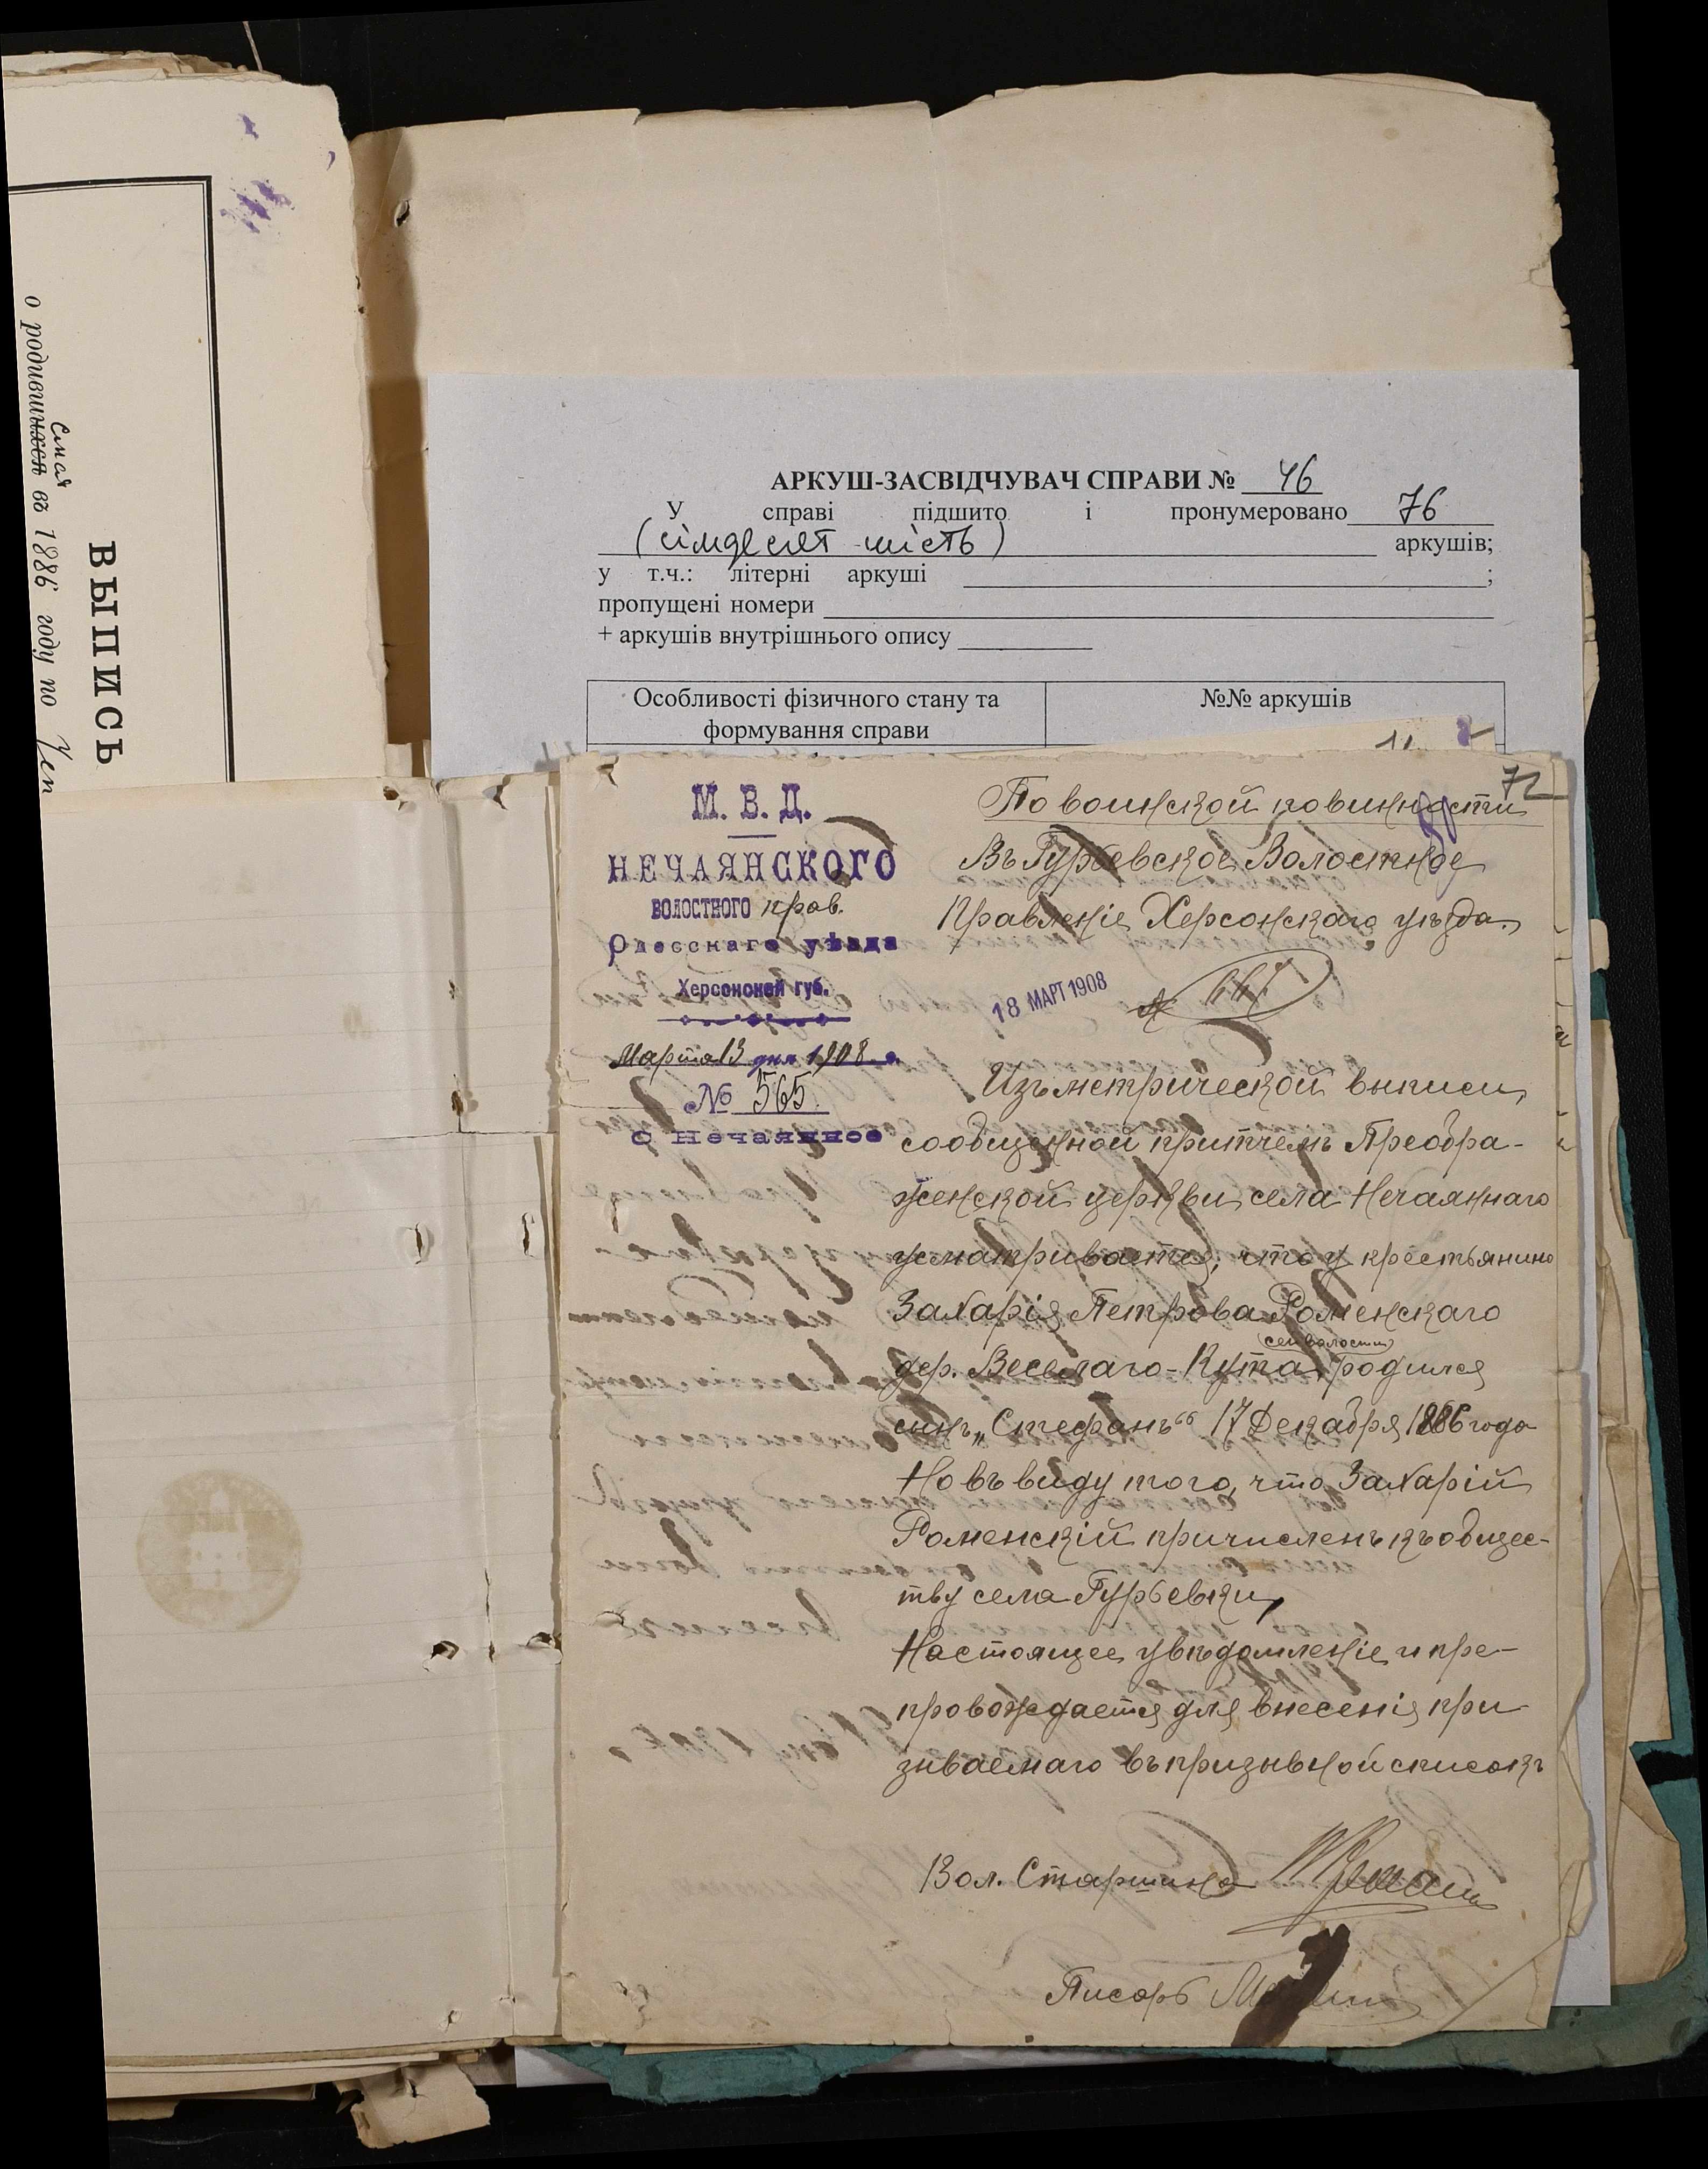 ВЫПИСЬ
о родившихся въ 1886 году по
АРКУШ-ЗАСВІДЧУВАЧ СПРАВИ № 46
У справі підшито і пронумеровано 76
(сімдесят шість) аркушів;
у т.ч.: літерні аркуші ;
пропущені номери
+ аркушів внутрішнього опису
Особливості фізичного стану та формування справи
№№ аркушів
72
М. В. Д.
НЕЧАЯНСКОГО
ВОЛОСТНОГО прав.
Одесскаго уѣзда
Херсонской губ.
Марта 13 дня 1908 г.
№ 565
С Нечаянное
По воинской повинности
Въ Гурьевское Волостное
Правленіе Херсонскаго уѣзда.
18 МАРТ 1908
Изъ метрической выписи,
сообщенной причтемъ Преобра-
женской церкви села Нечаяннаго
усматривается, что у крестьянина
Захарія Петрова Роменскаго
(сей волости)
дер. Веселаго-Кута родился
сынъ „Стефанъ“ 17 Декабря 1886 года
Но въ виду того, что Захарій
Роменскій причисленъ къ общес-
тву села Гурьевки,
Настоящее увѣдомленіе и пре-
провождается для внесенія при-
зываемаго въ призывной списокъ
Вол. Старшина
Писарь